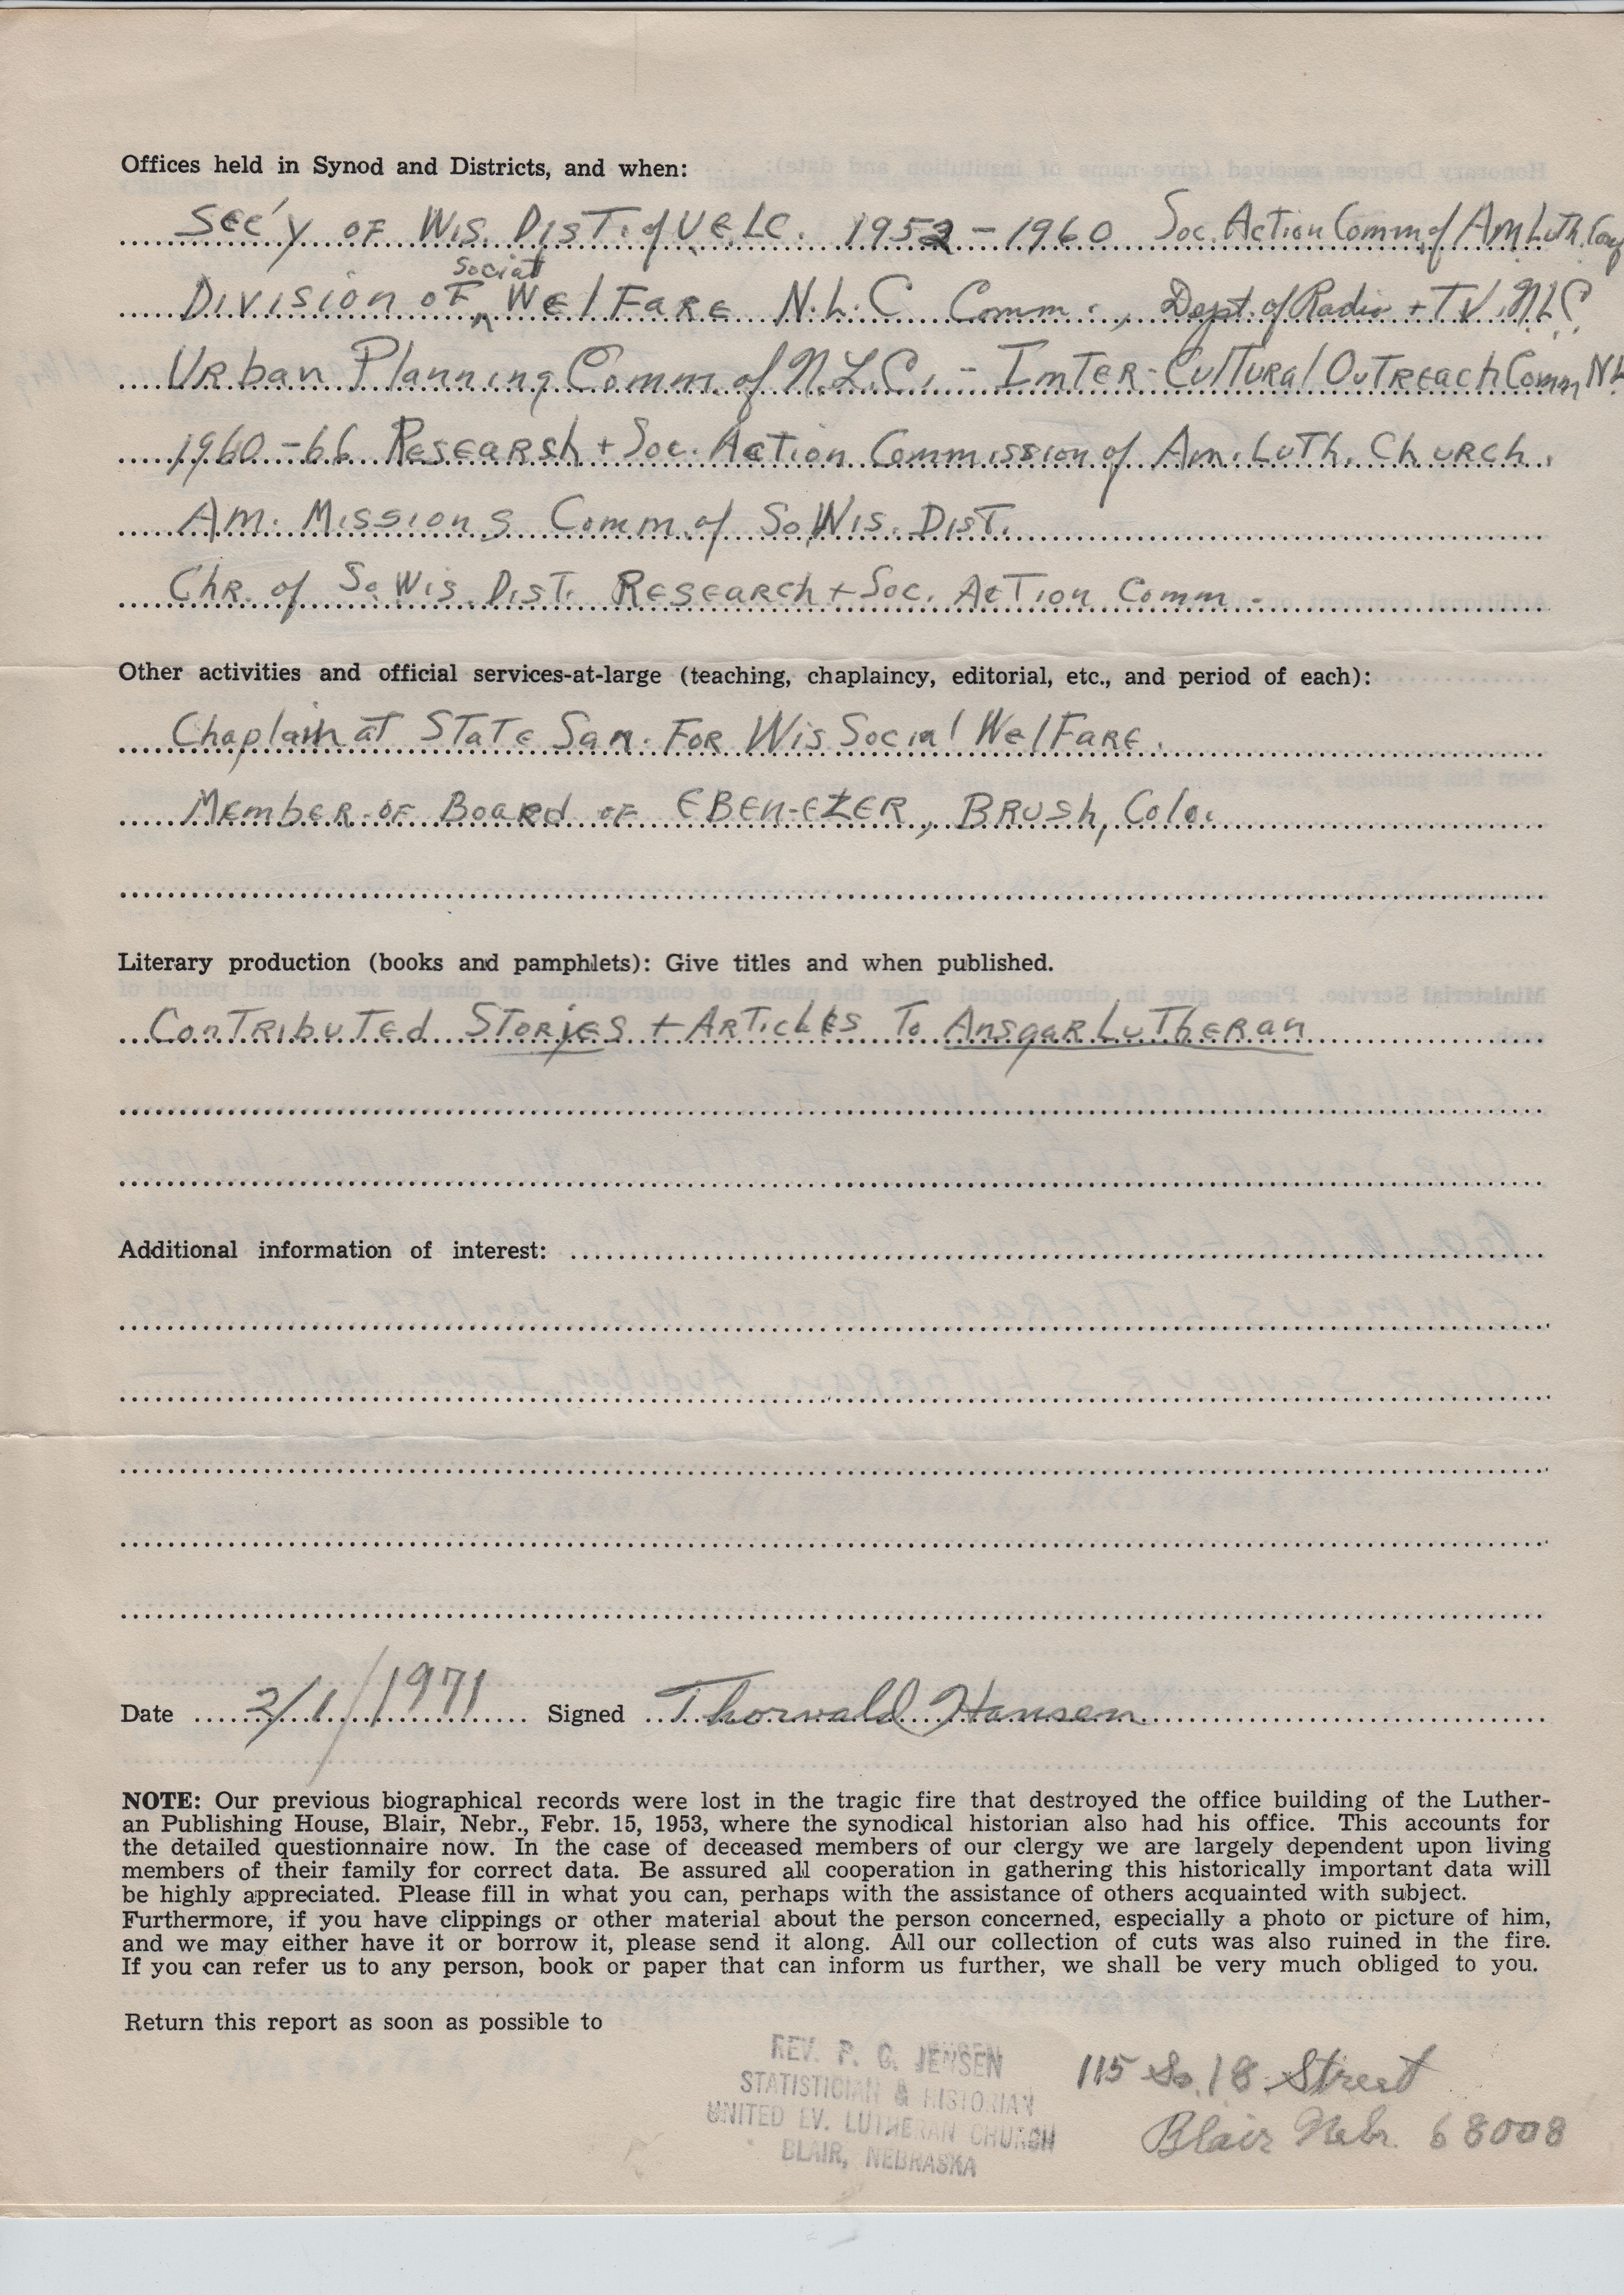 Offices held in Synod and Districts, and when:
Sec'y of Wis. Dist. of UELC. 1952 - 1960 Soc. Action Comm. of Am Luth. Conf
Division of Social Welfare N.L.C. Comm., Dept. of Radio + TV. NLC
Urban Planning Comm. of N.L.C. - Inter-Cultural Outreach Comm NL
1960-66 Researsh + Soc. Action Commission of Am. Luth. Church.
Am. Missions Comm. of So. Wis. Dist.
Chr. of So Wis. Dist. Research + Soc. Action Comm -
Other activities and official services-at-large (teaching, chaplaincy, editorial, etc., and period of each):
Chaplain at State San. For Wis Social Welfare.
Member of Board of EBEN-EZER, Brush, Colo.
Literary production (books and pamphlets): Give titles and when published.
Contributed Stories + Articles To Ansgar Lutheran
Additional information of interest:
Date 2/1/1971 Signed Thorvald Hansen
NOTE: Our previous biographical records were lost in the tragic fire that destroyed the office building of the Luther-
an Publishing House, Blair, Nebr., Febr. 15, 1953, where the synodical historian also had his office. This accounts for
the detailed questionnaire now. In the case of deceased members of our clergy we are largely dependent upon living
members of their family for correct data. Be assured all cooperation in gathering this historically important data will
be highly appreciated. Please fill in what you can, perhaps with the assistance of others acquainted with subject.
Furthermore, if you have clippings or other material about the person concerned, especially a photo or picture of him,
and we may either have it or borrow it, please send it along. All our collection of cuts was also ruined in the fire.
If you can refer us to any person, book or paper that can inform us further, we shall be very much obliged to you.
Return this report as soon as possible to
REV. P. C. JENSEN
STATISTICIAN & HISTORIAN
UNITED EV. LUTHERAN CHURCH
BLAIR, NEBRASKA
115 So. 18 Street
Blair Nebr. 68008